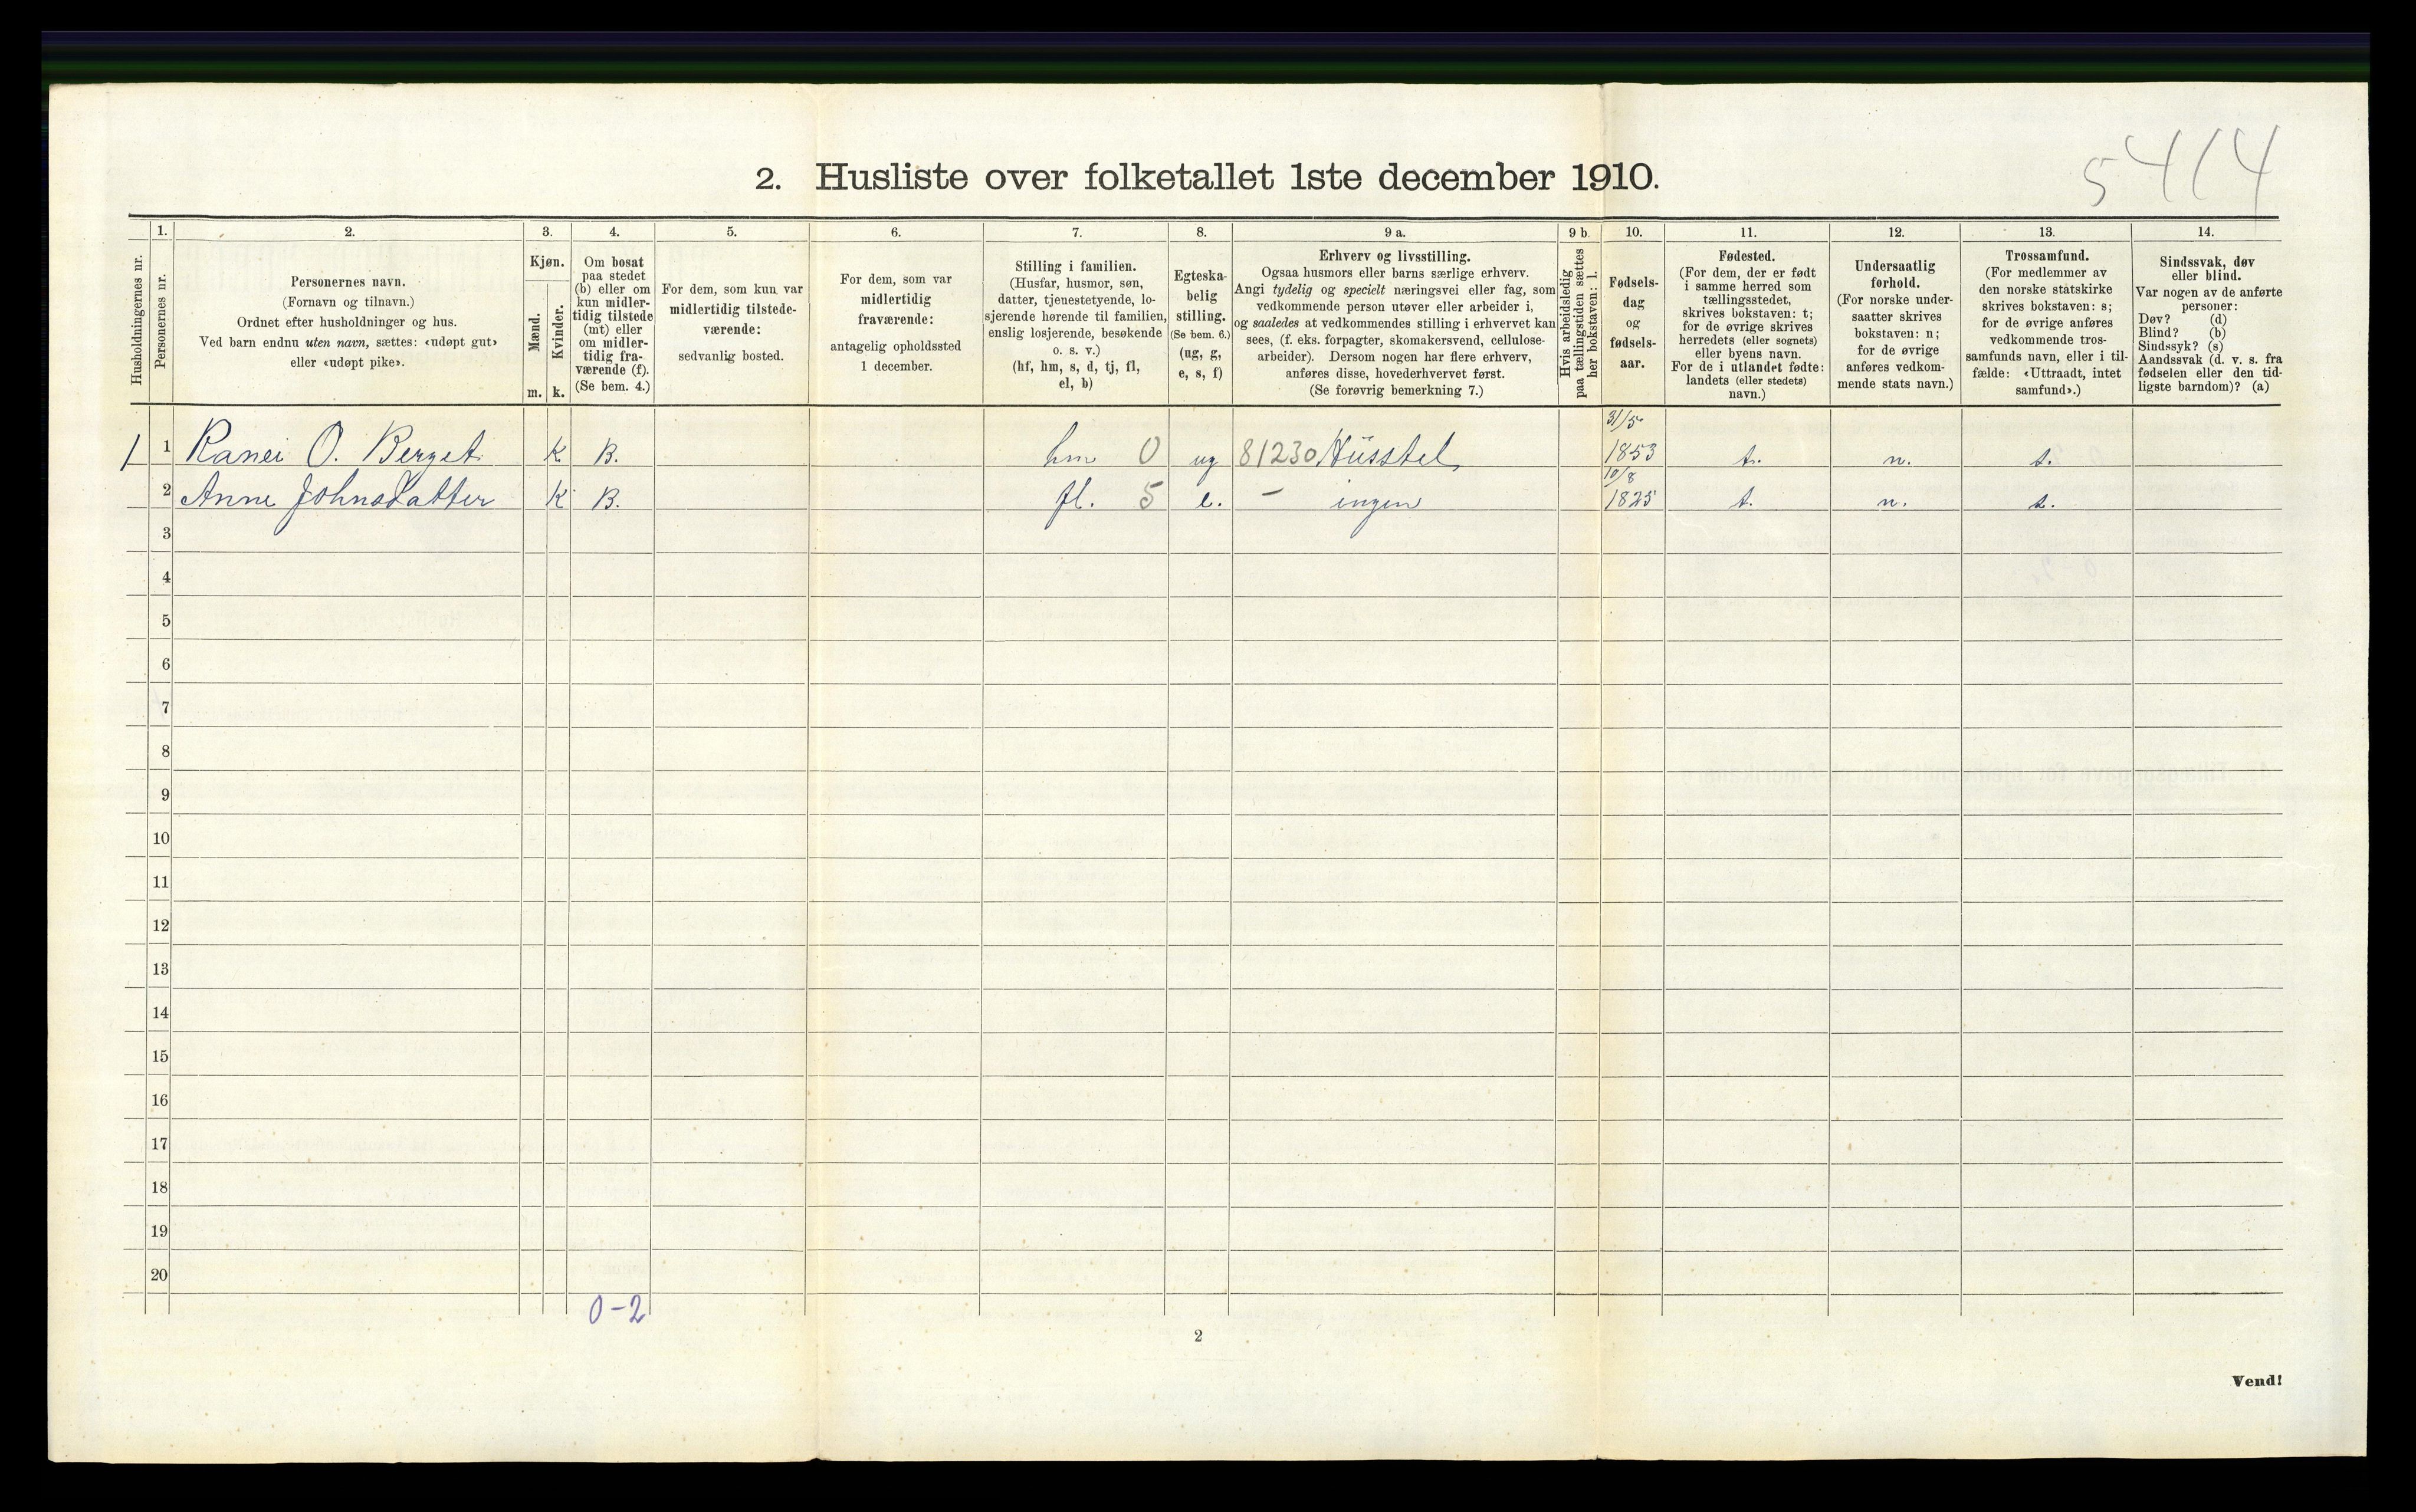 5414
2. Husliste over folketallet 1ste december 1910.
Husholdningernes nr.
1.
Personernes nr.
2.
Personernes navn.
(Fornavn og tilnavn.)
Ordnet efter husholdninger og hus.
Ved barn endnu uten navn, sættes: «udøpt gut»
eller «udøpt pike».
3.
Kjøn.
Mænd.
Kvinder.
m. k.
4.
Om bosat
paa stedet
(b) eller om
kun midler-
tidig tilstede
(mt) eller
om midler-
tidig fra-
værende (f).
(Se bem. 4.)
5.
For dem, som kun var
midlertidig tilstede-
værende:
sedvanlig bosted.
6.
For dem, som var
midlertidig
fraværende:
antagelig opholdssted
1 december.
7.
Stilling i familien.
(Husfar, husmor, søn,
datter, tjenestetyende, lo-
sjerende hørende til familien,
enslig losjerende, besøkende
o. s. v.)
(hf, hm, s, d, tj, fl,
el, b)
8.
Egteska-
belig
stilling.
(Se bem. 6.)
(ug, g,
e, s, f)
9 a.
Erhverv og livsstilling.
Ogsaa husmors eller barns særlige erhverv.
Angi tydelig og specielt næringsvei eller fag, som
vedkommende person utøver eller arbeider i,
og saaledes at vedkommendes stilling i erhvervet kan
sees, (f. eks. forpagter, skomakersvend, cellulose-
arbeider). Dersom nogen har flere erhverv,
anføres disse, hovederhvervet først.
(Se forøvrig bemerkning 7.)
9 b.
Hvis arbeidsledig
paa tællingstiden sættes
her bokstaven: l.
10.
Fødsels-
dag
og
fødsels-
aar.
11.
Fødested.
(For dem, der er født
i samme herred som
tællingsstedet,
skrives bokstaven: t;
for de øvrige skrives
herredets (eller sognets)
eller byens navn.
For de i utlandet fødte:
landets (eller stedets)
navn.)
12.
Undersaatlig
forhold.
(For norske under-
saatter skrives
bokstaven: n;
for de øvrige
anføres vedkom-
mende stats navn.)
13.
Trossamfund.
(For medlemmer av
den norske statskirke
skrives bokstaven: s;
for de øvrige anføres
vedkommende tros-
samfunds navn, eller i til-
fælde: «Uttraadt, intet
samfund».)
14.
Sindssvak, døv
eller blind.
Var nogen av de anførte
personer:
Døv? (d)
Blind? (b)
Sindssyk? (s)
Aandssvak (d. v. s. fra
fødselen eller den tid-
ligste barndom)? (a)
1 1 Ranei O. Berget K B. hm 0 ug 81230 Husstel 31/5 1853 t. n. s.
2 Anne Johnsdatter K B. fl. 5 e. - ingen 10/8 1825 t. n. s.
3
4
5
6
7
8
9
10
11
12
13
14
15
16
17
18
19
20
0-2
2
Vend!